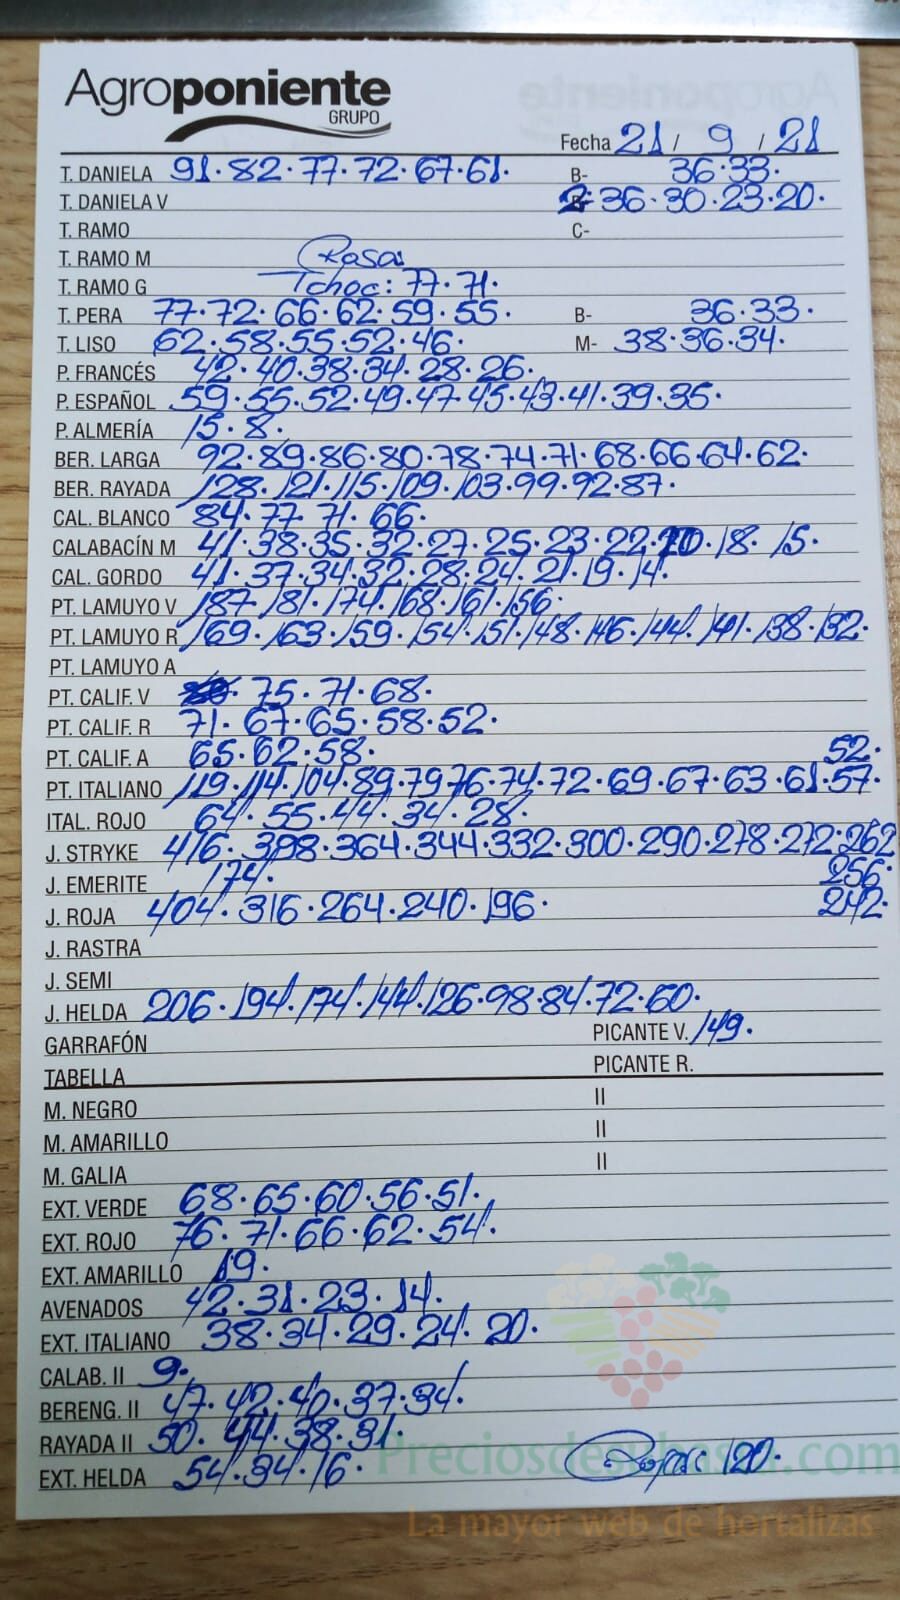 Agroponiente
GRUPO
Fecha 21 / 9 / 21
T. DANELA 91·82·77·72·67·61· B- 36·33·
T. DANIELA V 2· 36·30·23·20·
T. RAMO C-
T. RAMO M Rosa:
T. RAMO G Tchoc: 77·71·
T. PERA 77·72·66·62·59·55· B- 36·33·
T. LISO 62·58·55·52·46· M- 38·36·34·
P. FRANCÉS 42·40·38·34·28·26·
P. ESPAÑOL 59·55·52·49·47·45·43·41·39·35·
P. ALMERÍA 15·8·
BER. LARGA 92·89·86·80·78·74·71·68·66·64·62·
BER. RAYADA 128·121·115·109·103·99·92·87·
CAL. BLANCO 84·77·71·66·
CALABACÍN M 41·38·35·32·27·25·23·22·20·18·15·
CAL. GORDO 41·37·34·32·28·24·21·19·14·
PT. LAMUYO V 187·181·174·168·161·156·
PT. LAMUYO R 169·163·159·154·151·148·146·144·141·138·132·
PT. LAMUYO A
PT. CALIF. V 75·71·68·
PT. CALIF. R 71·67·65·58·52·
PT. CALIF. A 65·62·58· 52·
PT. ITALIANO 119·114·104·89·79·76·74·72·69·67·63·61·57·
ITAL. ROJO 64·55·44·34·28·
J. STRYKE 416·398·364·344·332·300·290·278·272·262
J. EMERITE 174· 256·
J. ROJA 404·316·264·240·196· 242·
J. RASTRA
J. SEMI
J. HELDA 206·194·174·144·126·98·84·72·60·
GARRAFÓN PICANTE V. 149·
TABELLA PICANTE R.
M. NEGRO II
M. AMARILLO II
M. GALIA II
EXT. VERDE 68·65·60·56·51·
EXT. ROJO 76·71·66·62·54·
EXT. AMARILLO 19·
AVENADOS 42·31·23·14·
EXT. ITALIANO 38·34·29·24·20·
CALAB. II 9·
BERENG. II 47·42·40·37·34·
RAYADA II 50·44·38·31·
EXT. HELDA 54·34·16· 120·
Preciosdesubasta.com
La mayor web de hortalizas